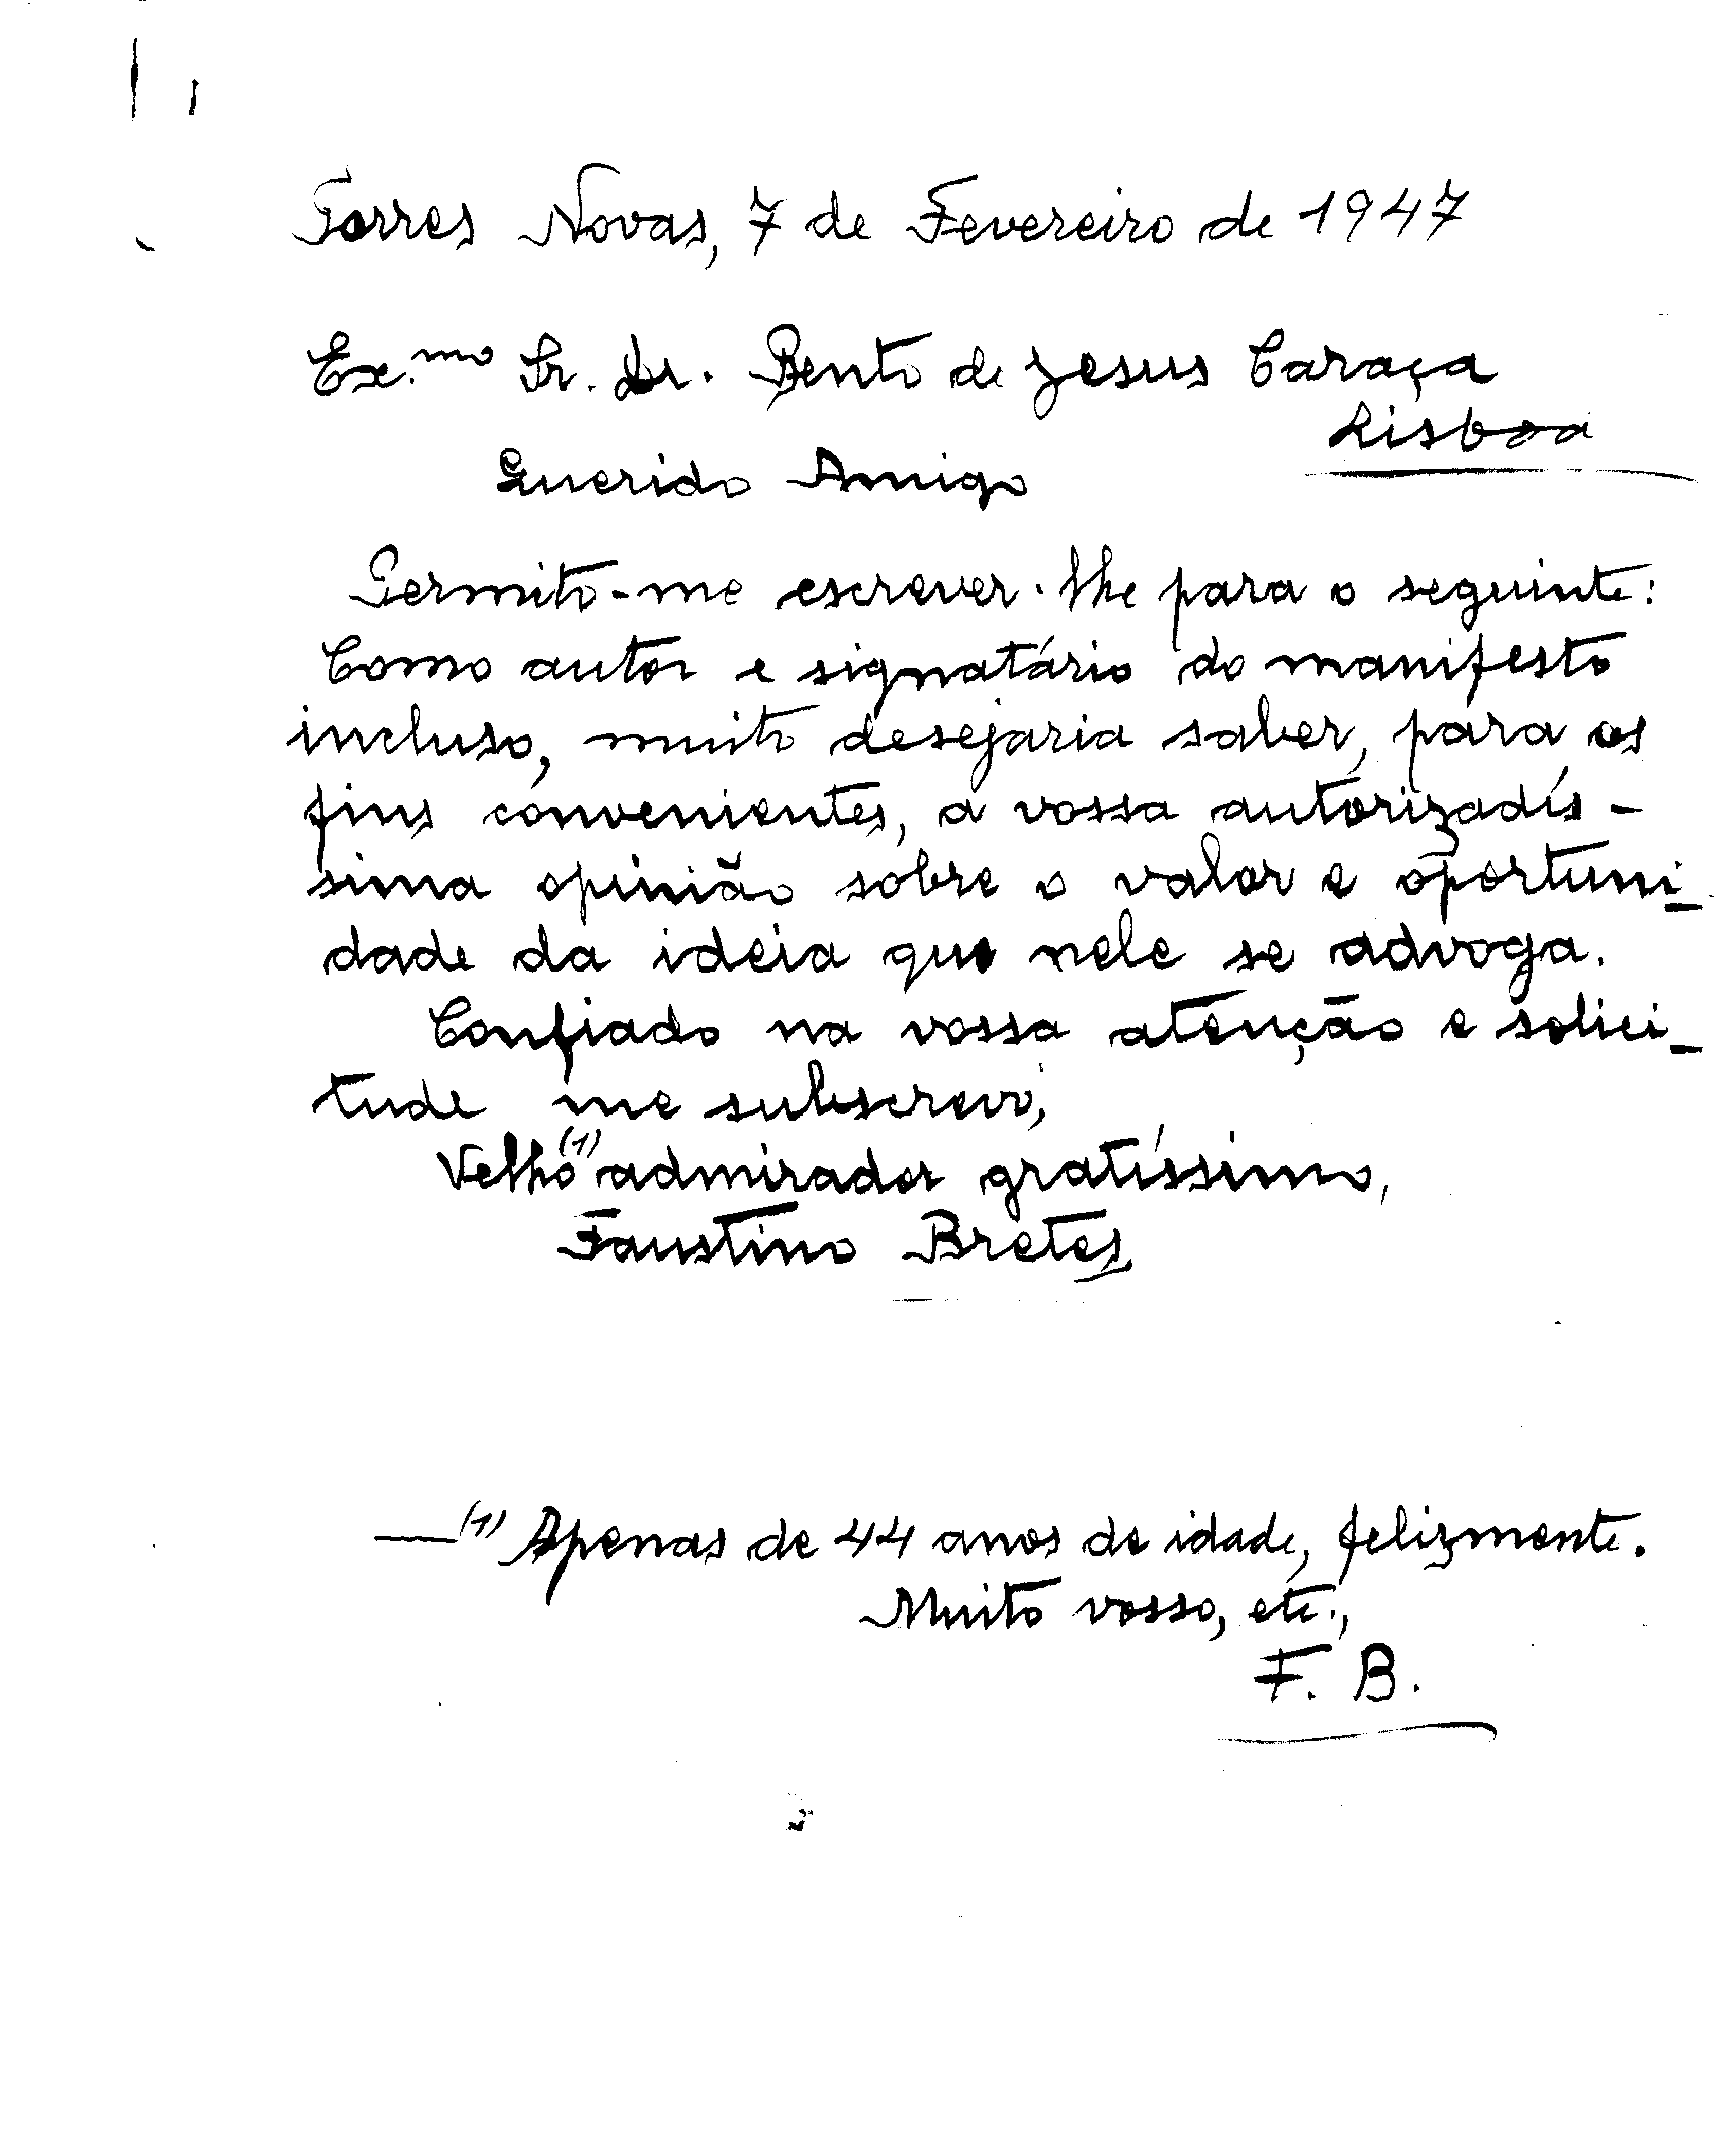 Torres Novas, 7 de Fevereiro de 1947
Ex.mo Sr. Dr. Bento de Jesus Caraça
Lisboa
Querido Amigo
Permito-me escrever-lhe para o seguinte:
Como autor e signatário do manifesto
incluso, muito desejaria saber, para os
fins convenientes, a vossa autorizadís-
sima opinião sobre o valor e oportuni-
dade da ideia que nele se advoga.
Confiado na vossa atenção e solici-
tude me subscrevo,
Velho (1) admirador gratíssimo,
Faustino Bretes
—(1) Apenas de 44 anos de idade, felizmente.
Muito vosso, etc.,
F. B.